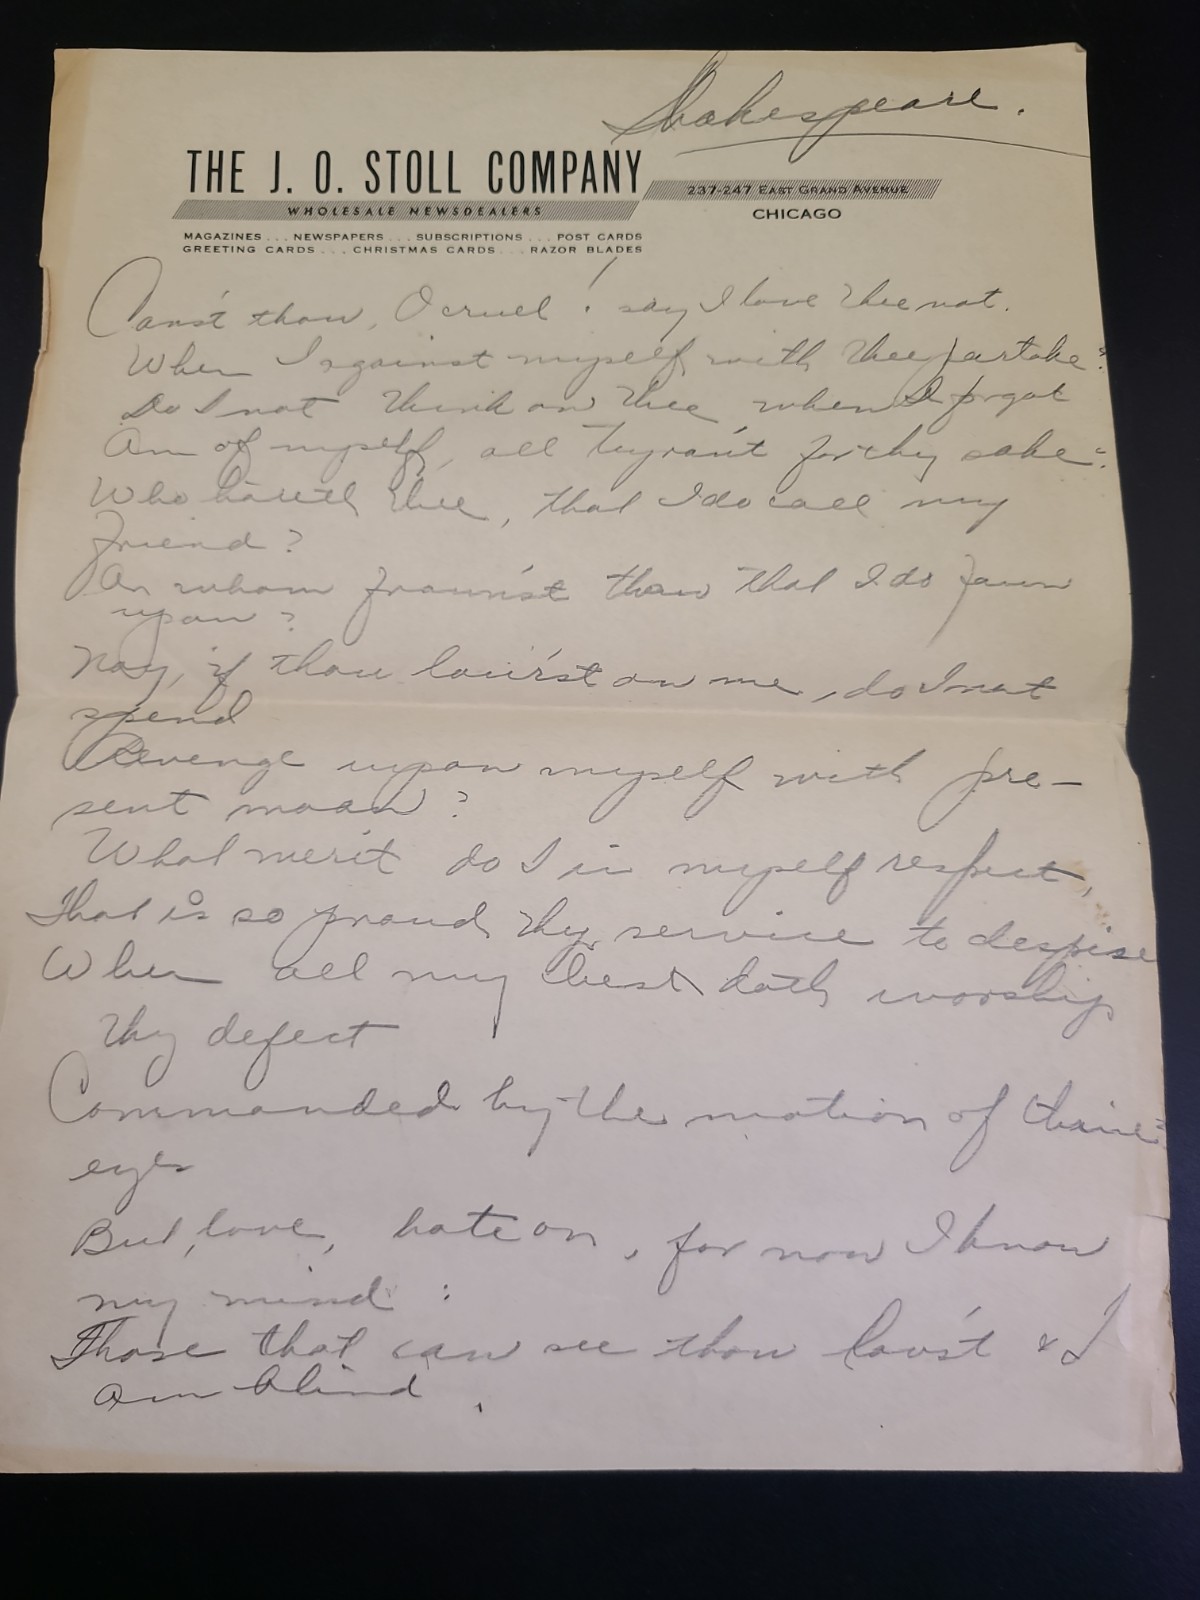 Shakespeare.
THE J. O. STOLL COMPANY
WHOLESALE NEWSDEALERS
237-247 EAST GRAND AVENUE
CHICAGO
MAGAZINES ... NEWSPAPERS ... SUBSCRIPTIONS ... POST CARDS
GREETING CARDS ... CHRISTMAS CARDS ... RAZOR BLADES
Can'st thou, O cruel! say I love thee not.
When I against myself with thee partake?
Do I not think on thee when I forgot
Am of myself, all tyrant for thy sake?
Who hateth thee, that I do call my
friend?
On whom frown'st thou that I do fawn
upon?
Nay, if thou lour'st on me, do I not
spend
Revenge upon myself with pre-
sent moan?
What merit do I in myself respect,
That is so proud thy service to despise
When all my best doth worship
thy defect
Commanded by the motion of thine
eyes
But, love, hate on, for now I know
my mind:
Those that can see thou lov'st & I
am blind.